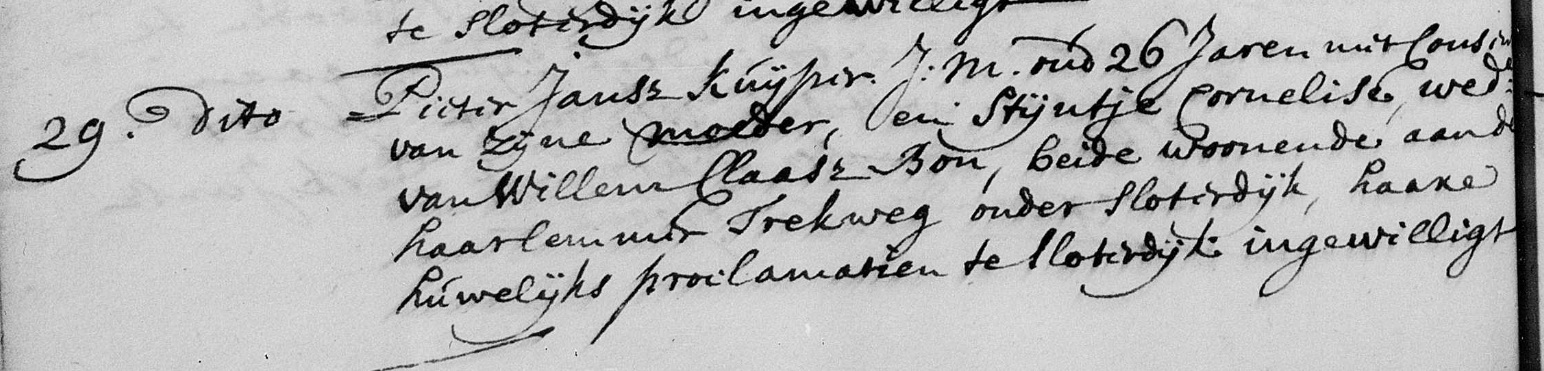 te Sloterdijk ingewilligt
29. Dito Pieter Jansz Kuÿper. J: M. oud 26 Jaren met Consent
van zijne moeder, en Stijntje Cornelisse, wed:
van Willem Claasz Bon, beide woonende aan de
haarlemmer Trekweg onder Sloterdijk, haare
huwelijks proclamatien te Sloterdijk ingewilligt